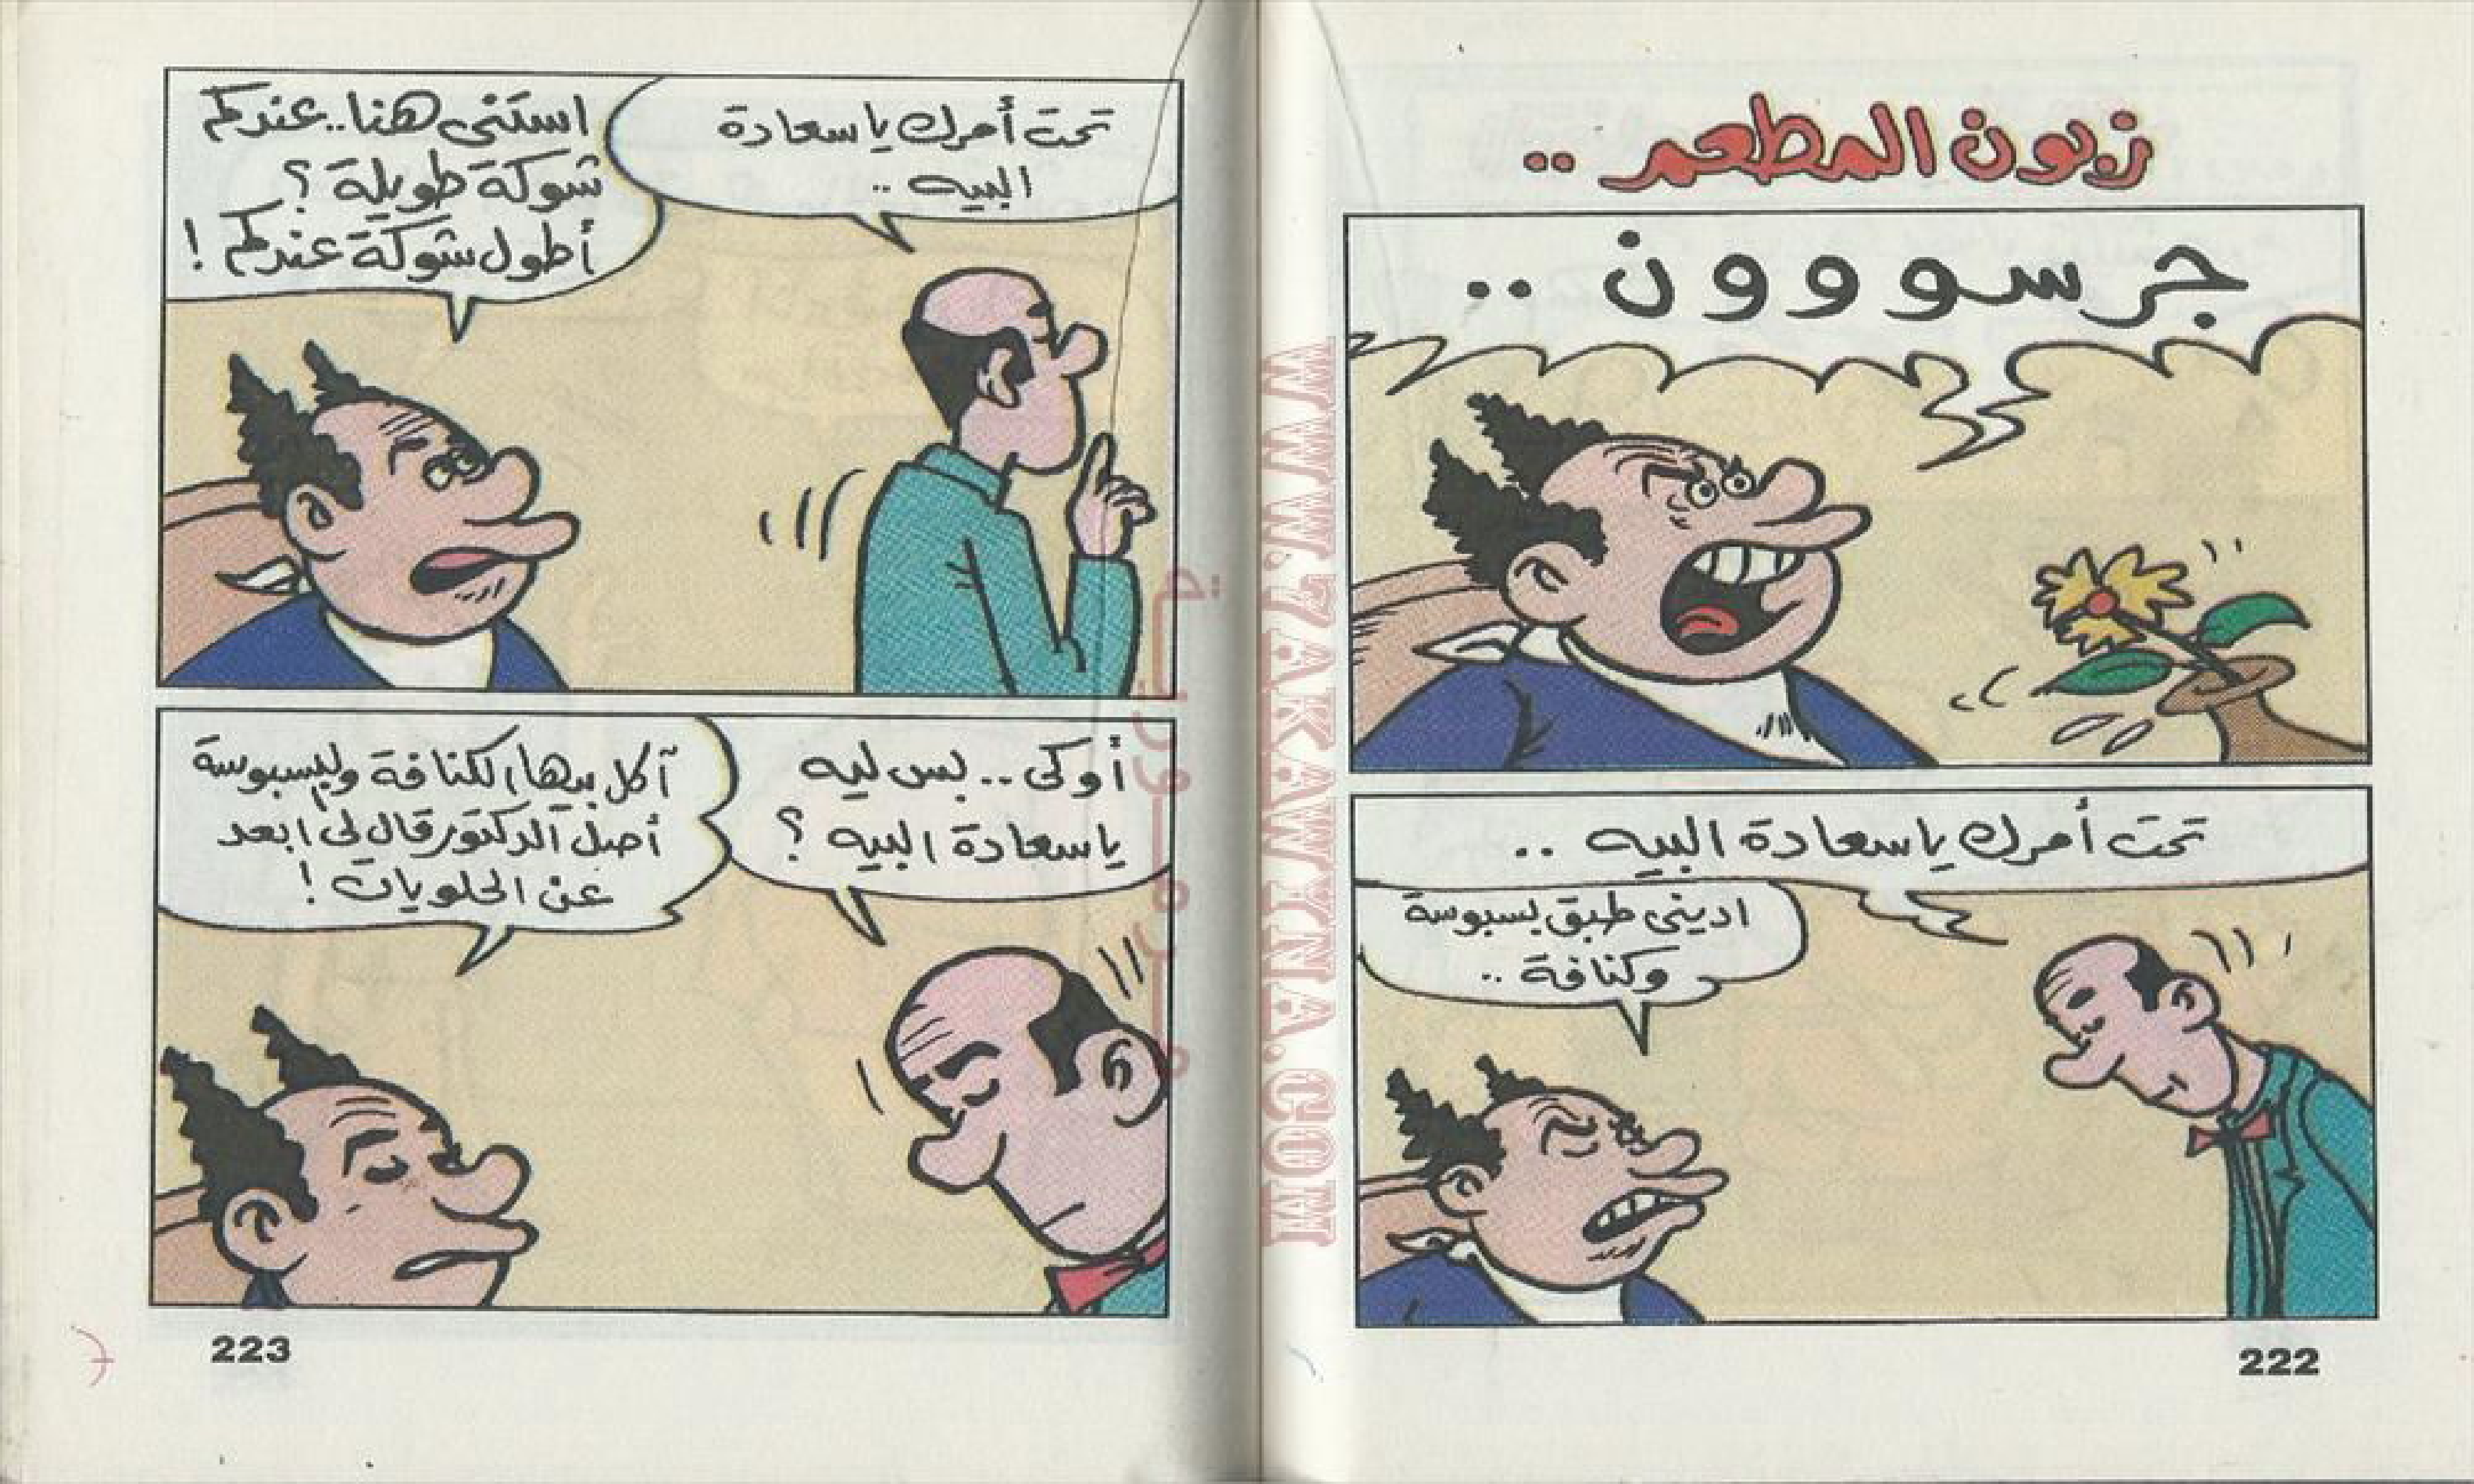 زبون المطعم ..
جرسووون ..
تحت أمرك يا سعادة البيه ..
اديني طبق بسبوسة
وكنافة ..
222
تحت أمرك يا سعادة
البيه ..
استنى هنا.. عندكم
شوكة طويلة ؟
أطول شوكة عندكم !
أوكى.. بس ليه
يا سعادة البيه ؟
آكل بيها الكنافة والبسبوسة
أصل الدكتور قال لى ابعد
عن الحلويات !
223
WWW.7AKAWYNA.COM